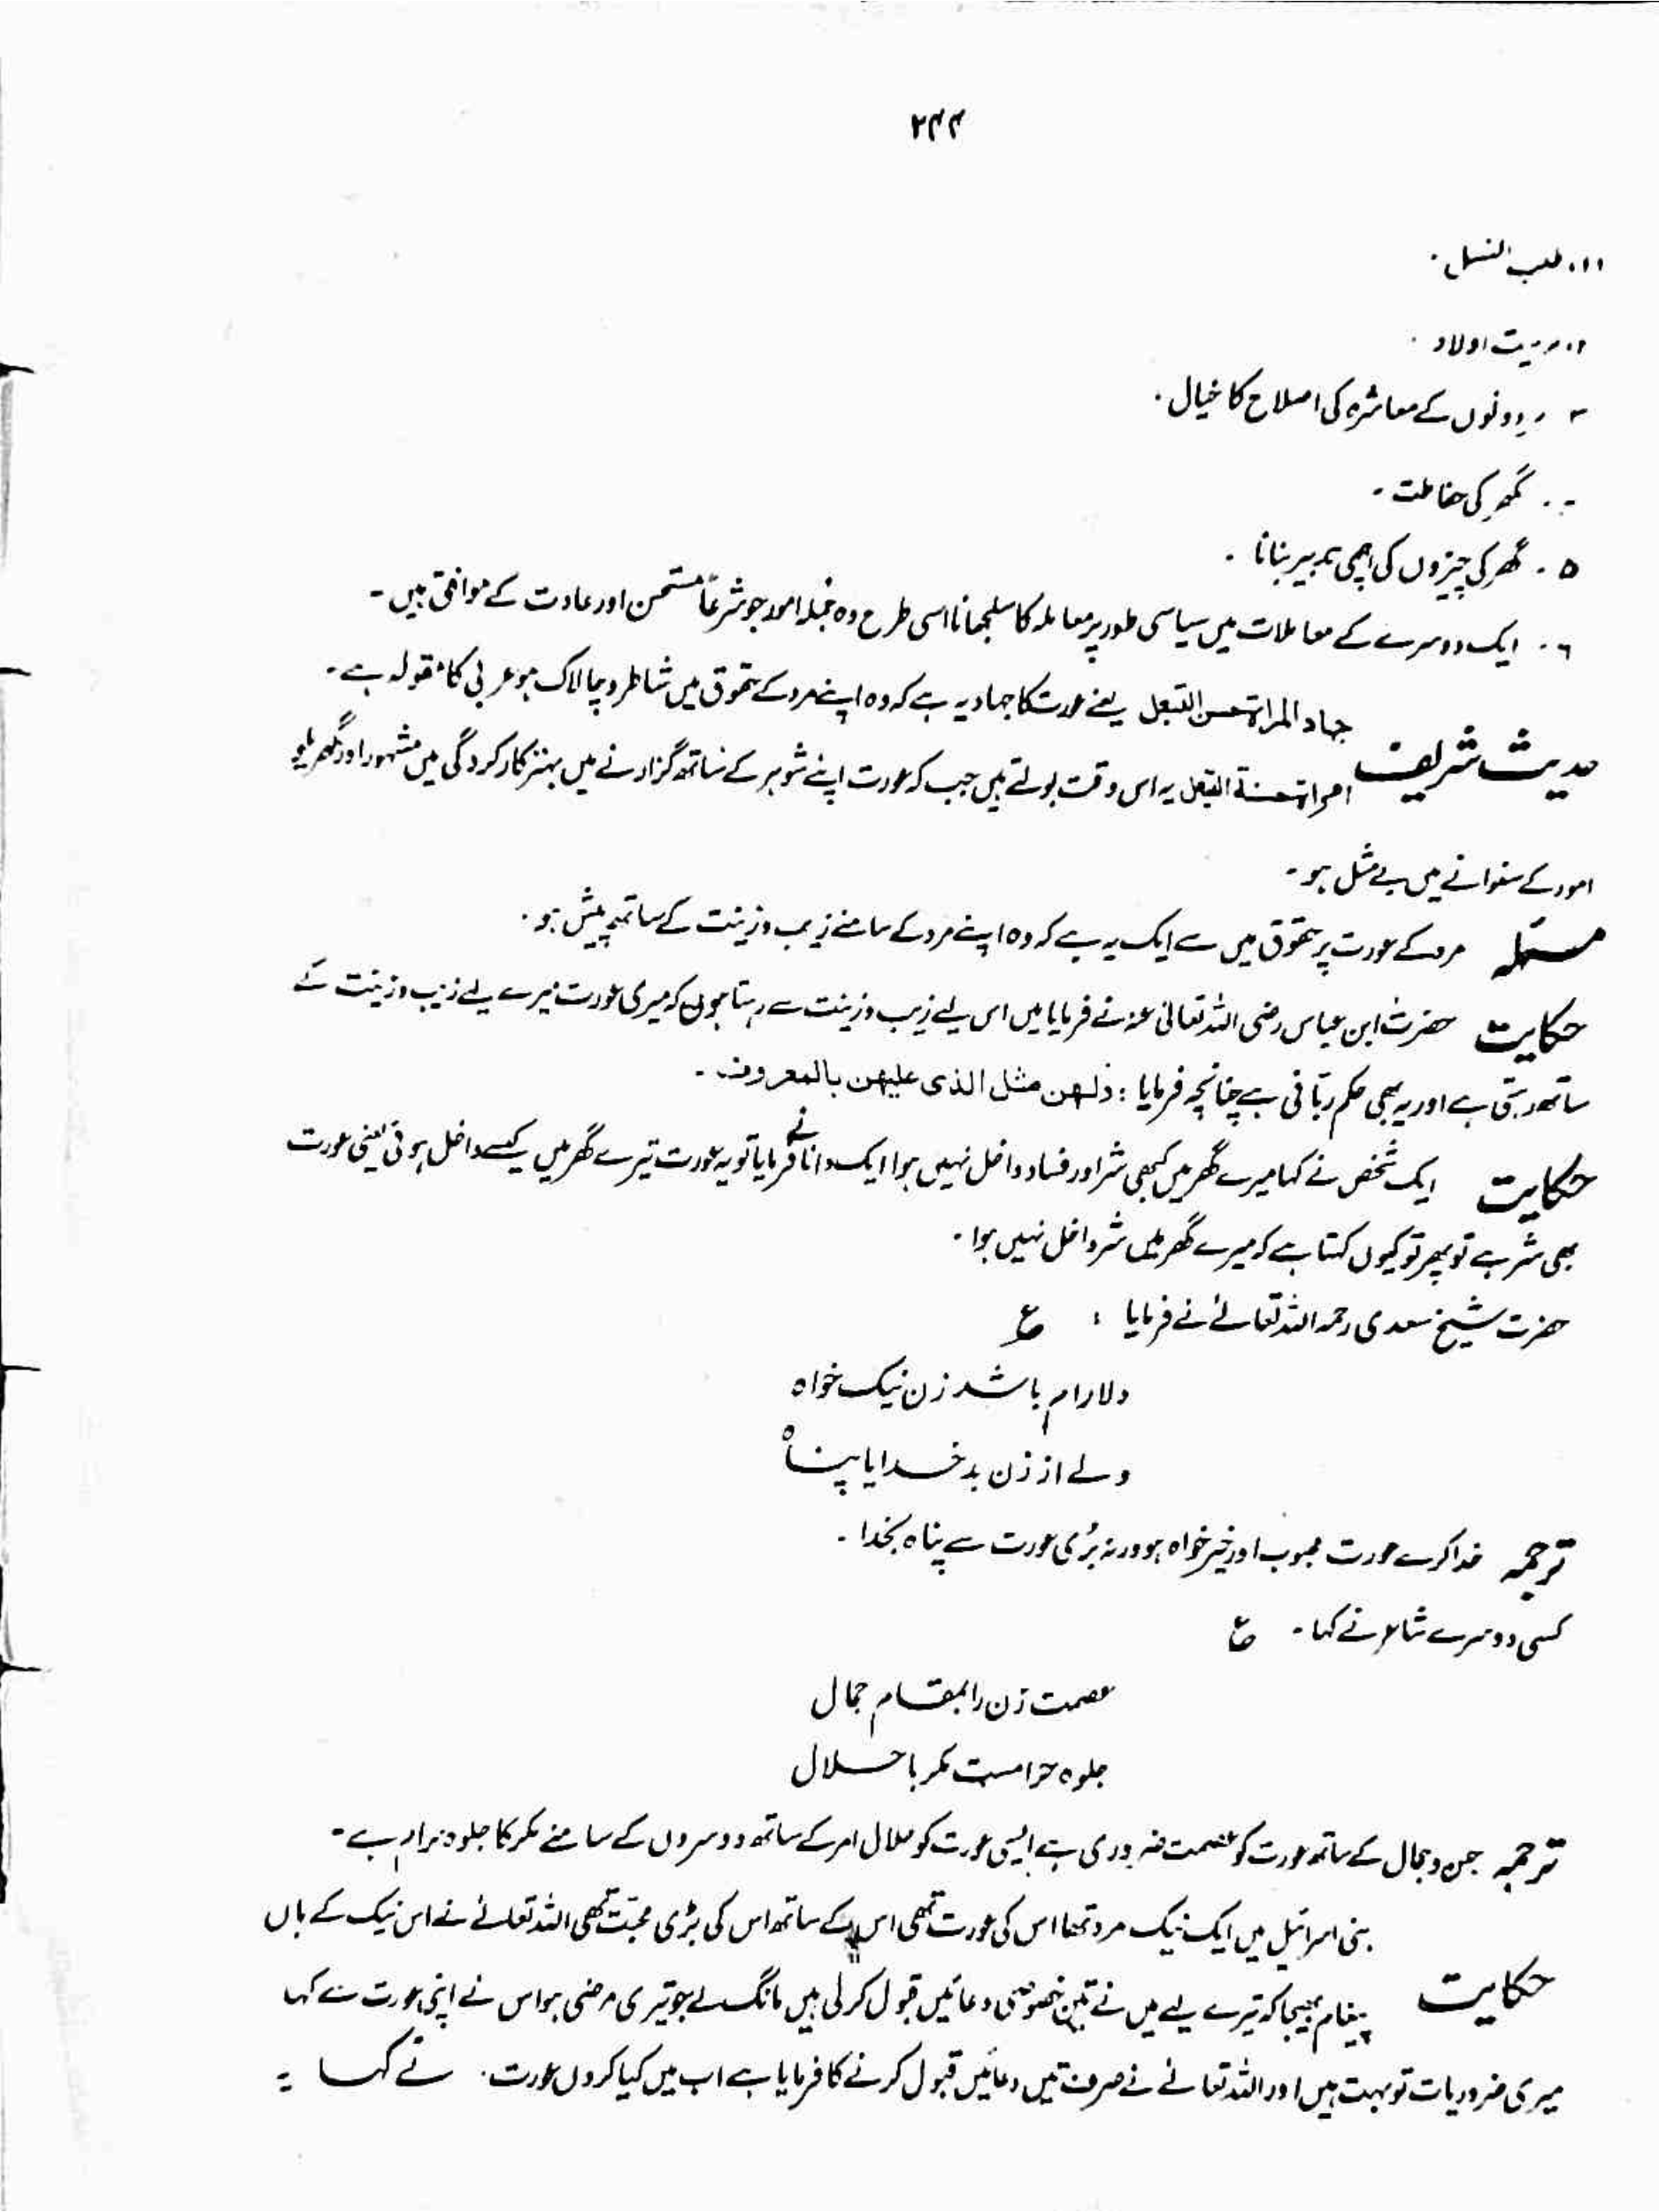 ۲۴۴
۱۔ طلب النسل ۔
۲۔ تربیت اولاد ۔
۳ ۔ دونوں کے معاشرہ کی اصلاح کا خیال ۔
۴ ۔ گھر کی حفاظت ۔
۵ ۔ گھر کی چیزوں کی اچھی تدبیر بنانا ۔
۶ ۔ ایک دوسرے کے معاملات میں سیاسی طور پر معاملہ کا سلجھانا اسی طرح وہ جملہ امور جو شرعاً مستحسن اور عادت کے موافق ہیں ۔
حدیث شریف جہاد المراۃ حسن التبعل یعنے عورت کا جہاد یہ ہے کہ وہ اپنے مرد کے حقوق میں شاطر و چالاک ہو عربی کا مقولہ ہے ۔
امراۃ حسنۃ التبعل یہ اس وقت بولتے ہیں جب کہ عورت اپنے شوہر کے ساتھ گزارنے میں بہتر کارکردگی میں مشہور اور گھریلو
امور کے سنوانے میں بے مثل ہو ۔
مسئلہ مرد کے عورت پر حقوق میں سے ایک یہ ہے کہ وہ اپنے مرد کے سامنے زیب و زینت کے ساتھ پیش ہو ۔
حکایت حضرت ابن عباس رضی اللہ تعالیٰ عنہ نے فرمایا میں اس لیے زیب و زینت سے رہتا ہوں کہ میری عورت میرے لیے زیب و زینت کے
ساتھ رہتی ہے اور یہ بھی حکم ربّانی ہے چنانچہ فرمایا : ولہن مثل الذی علیہن بالمعروف ۔
حکایت ایک شخص نے کہا میرے گھر میں کبھی شر اور فساد داخل نہیں ہوا ایک دانا نے فرمایا تو یہ عورت تیرے گھر میں کیسے داخل ہوئی یعنی عورت
بھی شر ہے تو پھر تو کیوں کہتا ہے کہ میرے گھر میں شر داخل نہیں ہوا ۔
حضرت شیخ سعدی رحمہ اللہ تعالےٰ نے فرمایا : ع
دلارام باشد زن نیک خواہ
ولے از زن بد خدایا پناہ
ترجمہ خدا کرے عورت محبوب اور خیر خواہ ہو ورنہ بُری عورت سے پناہ بخدا ۔
کسی دوسرے شاعر نے کہا ۔ ع
عصمت زن را بمقام جمال
جلوہ حرامست مگر با حلال
ترجمہ حسن و جمال کے ساتھ عورت کو عصمت ضروری ہے ایسی عورت کو حلال امر کے ساتھ دوسروں کے سامنے مگر کا جلوہ حرام ہے ۔
بنی اسرائیل میں ایک نیک مرد تھا اس کی عورت تھی اس کے ساتھ اس کی بڑی محبّت تھی اللہ تعالےٰ نے اس نیک کے ہاں
حکایت پیغام بھیجا کہ تیرے لیے میں نے تین خصوصی دعائیں قبول کر لی ہیں مانگ لے جو تیری مرضی ہو اس نے اپنی عورت سے کہا
میری ضروریات تو بہت ہیں اور اللہ تعالےٰ نے صرف تین دعائیں قبول کرنے کا فرمایا ہے اب میں کیا کروں عورت ۔ نے کہا :